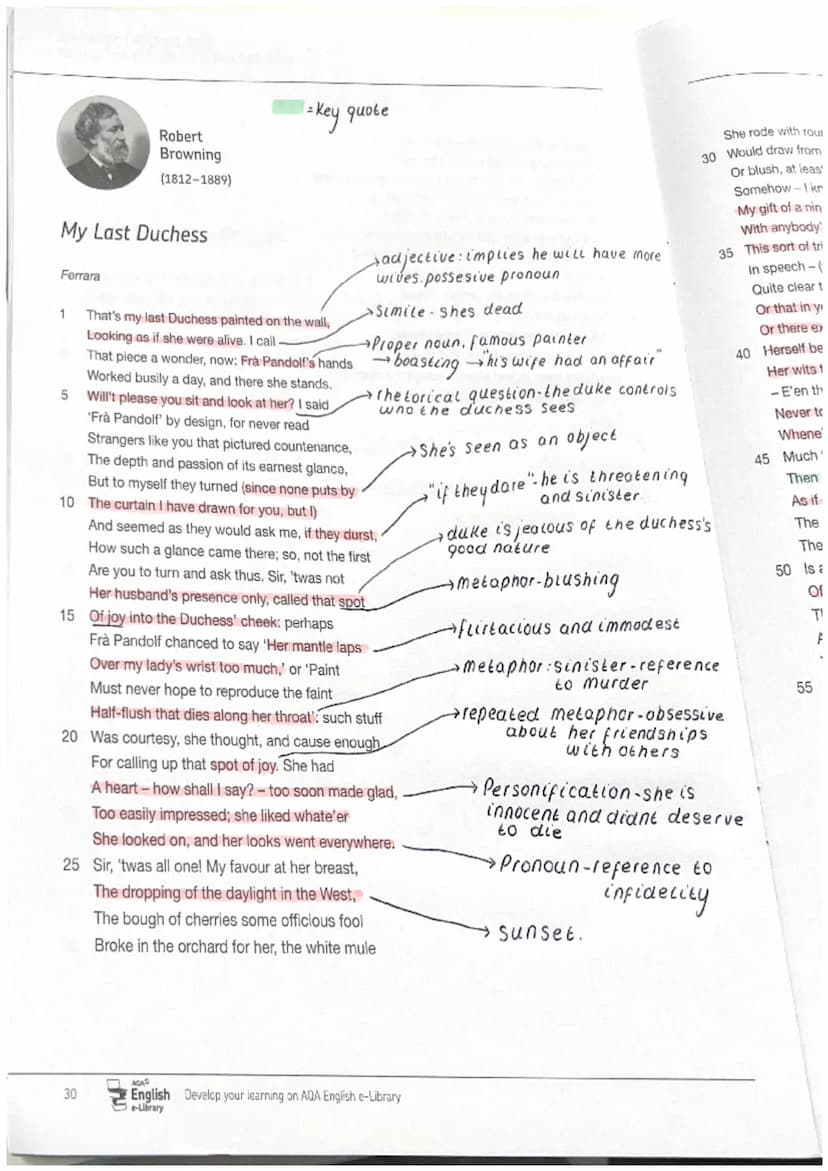 = Key quote
Robert
Browning
(1812–1889)
My Last Duchess
Ferrara
1 That's my last Duchess painted on the wall,
Looking as if she were alive. I call
That piece a wonder, now: Frà Pandolf's hands
Worked busily a day, and there she stands.
5 Will't please you sit and look at her? I said
'Frà Pandolf' by design, for never read
Strangers like you that pictured countenance,
The depth and passion of its earnest glance,
But to myself they turned (since none puts by
10 The curtain I have drawn for you, but I)
And seemed as they would ask me, if they durst,
How such a glance came there; so, not the first
Are you to turn and ask thus. Sir, 'twas not
Her husband's presence only, called that spot
15 Of joy into the Duchess' cheek: perhaps
Frà Pandolf chanced to say 'Her mantle laps
Over my lady's wrist too much,' or 'Paint
Must never hope to reproduce the faint
Half-flush that dies along her throat': such stuff
20 Was courtesy, she thought, and cause enough
For calling up that spot of joy. She had
A heart – how shall I say? – too soon made glad,
Too easily impressed; she liked whate'er
She looked on, and her looks went everywhere.
25 Sir, 'twas all one! My favour at her breast,
The dropping of the daylight in the West,
The bough of cherries some officious fool
Broke in the orchard for her, the white mule
adjective: implies he will have more
wives. possesive pronoun
Simile - shes dead
Proper noun, famous painter
→ boasting → "his wife had an affair"
rhetorical question - the duke controls
who the duchess sees
She's seen as an object
"if they dare" - he is threatening
and sinister
duke is jealous of the duchess's
good nature
metaphor - blushing
flirtacious and immodest
metaphor: sinister - reference
to murder
repeated metaphor - obsessive
about her friendships
with others
Personification - she is
innocent and didnt deserve
to die
Pronoun - reference to
infidelity
sunset.
30
AQA
English
e-Library
Develop your learning on AQA English e-Library
She rode with
30 Would draw from
Or blush, at
Somehow – I
My gift of a
With
35 This sort of
In speech – (
Quite clear
Or that in
Or there
40 Herself be
Her wits
– E'en
Never
45 Much
Then
As if
The
The
50 Is
Of
55